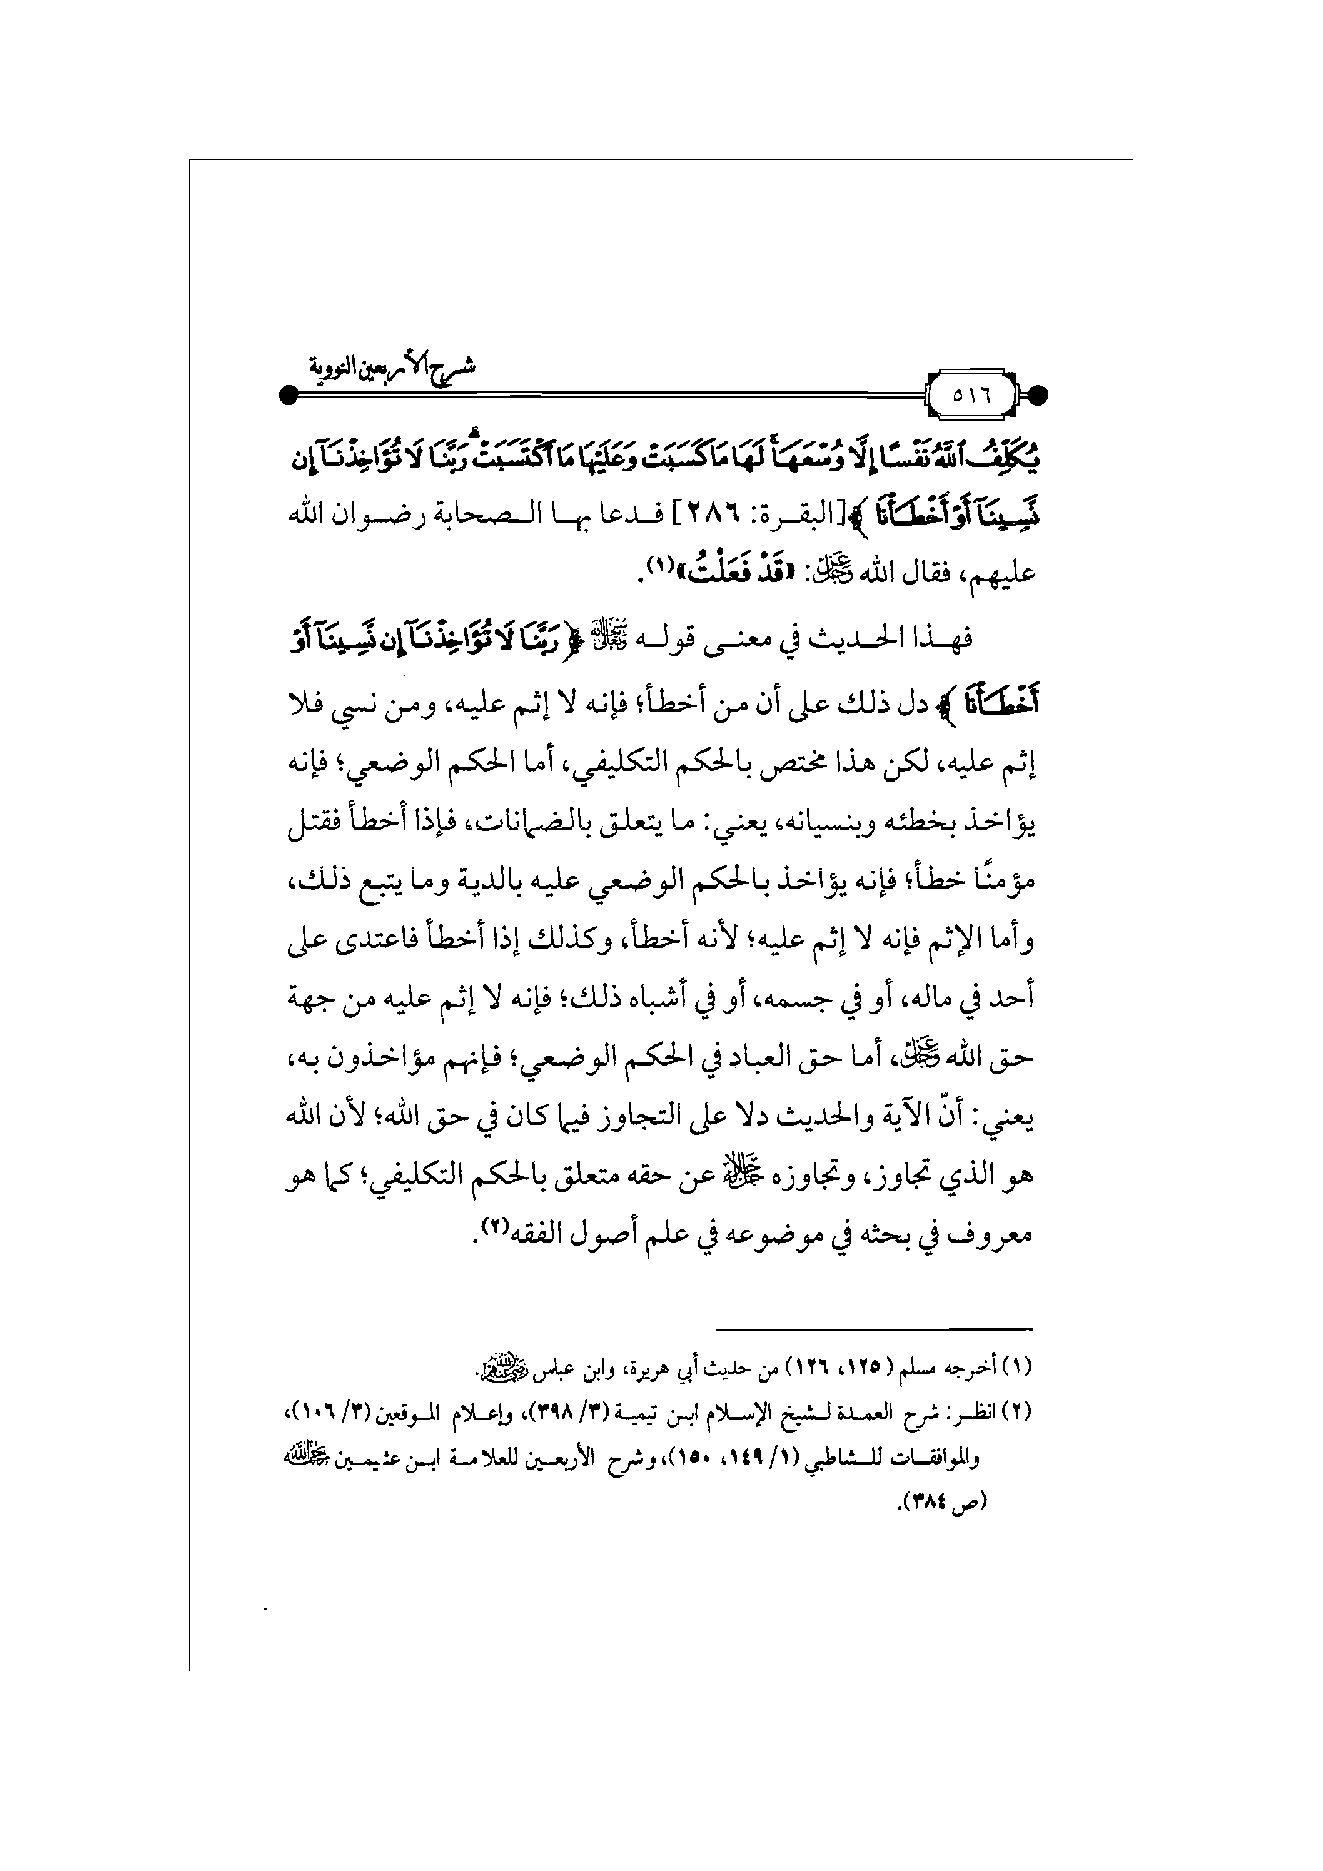 شرح الأربعين النووية
٥١٦
يُكَلِّفُ ٱللَّهُ نَفْسًا إِلَّا وُسْعَهَا ۚ لَهَا مَا كَسَبَتْ وَعَلَيْهَا مَا ٱكْتَسَبَتْ ۗ رَبَّنَا لَا تُؤَاخِذْنَآ إِن
نَّسِينَآ أَوْ أَخْطَأْنَا ﴾ [البقرة: ٢٨٦] فدعا بها الصحابة رضوان الله
عليهم، فقال الله ﷿: «قَدْ فَعَلْتُ»(١).
فهذا الحديث في معنى قوله ﴿ رَبَّنَا لَا تُؤَاخِذْنَآ إِن نَّسِينَآ أَوْ
أَخْطَأْنَا ﴾ دل ذلك على أن من أخطأ؛ فإنه لا إثم عليه، ومن نسي فلا
إثم عليه، لكن هذا مختص بالحكم التكليفي، أما الحكم الوضعي؛ فإنه
يؤاخذ بخطئه وبنسيانه، يعني: ما يتعلق بالضمانات، فإذا أخطأ فقتل
مؤمنًا خطأ؛ فإنه يؤاخذ بالحكم الوضعي عليه بالدية وما يتبع ذلك،
وأما الإثم فإنه لا إثم عليه؛ لأنه أخطأ، وكذلك إذا أخطأ فاعتدى على
أحد في ماله، أو في جسمه، أو في أشباه ذلك؛ فإنه لا إثم عليه من جهة
حق الله ﷿، أما حق العباد في الحكم الوضعي؛ فإنهم مؤاخذون به،
يعني: أنّ الآية والحديث دلا على التجاوز فيما كان في حق الله؛ لأن الله
هو الذي تجاوز، وتجاوزه ﷻ عن حقه متعلق بالحكم التكليفي؛ كما هو
معروف في بحثه في موضوعه في علم أصول الفقه(٢).
(١) أخرجه مسلم (١٢٥، ١٢٦) من حديث أبي هريرة، وابن عباس ﵃.
(٢) انظر: شرح العمدة لشيخ الإسلام ابن تيمية (٣/ ٣٩٨)، وإعلام الموقعين (٣/ ١٠٦)،
والموافقات للشاطبي (١/ ١٤٩، ١٥٠)، وشرح الأربعين للعلامة ابن عثيمين ﵀
(ص ٣٨٤).